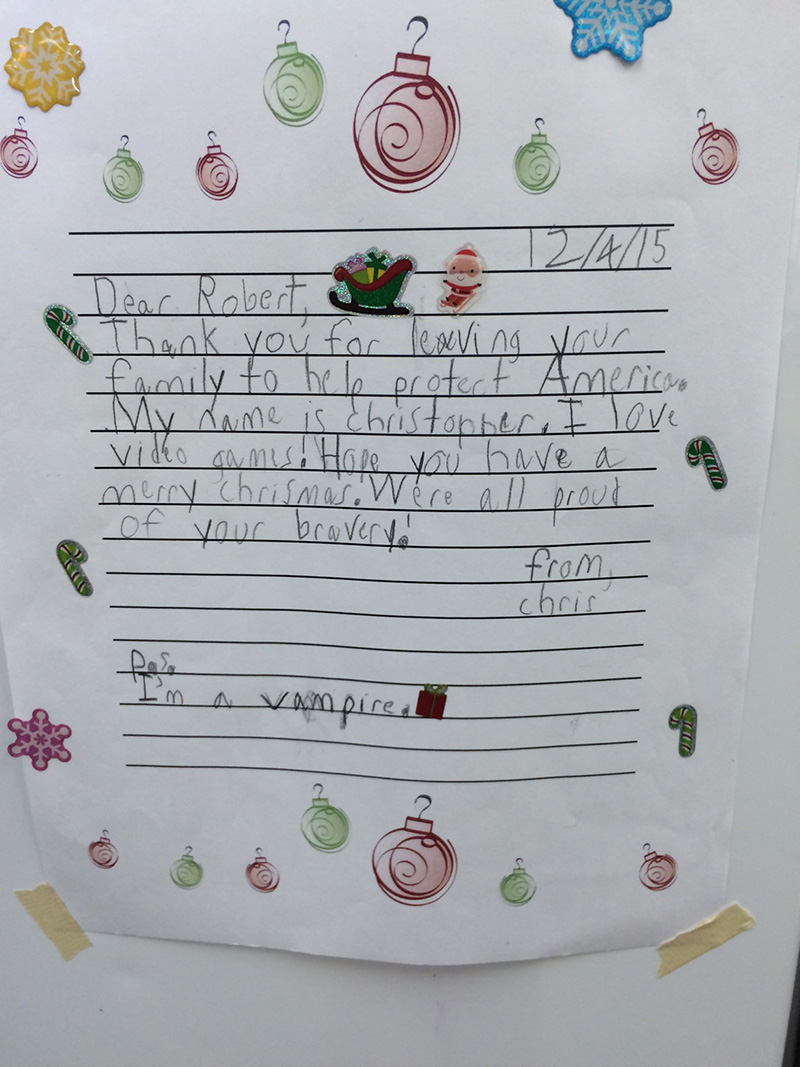 12/4/15
Dear Robert,
Thank you for leaving your
family to help protect America.
My name is christopher. I love
video games! Hope you have a
merry chrismas. We're all proud
of your bravery!
from,
chris
P.s.
I'm a vampire.